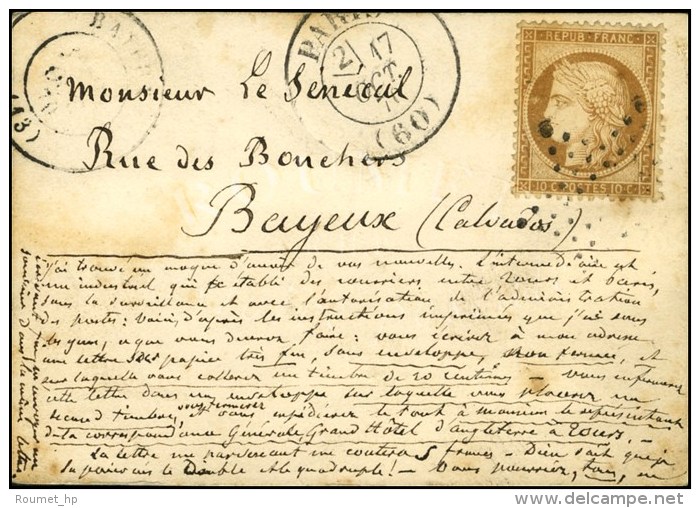 PARIS
2 17
OCT.
70
(60)
BAYEUX
(13)
REPUB. FRANC.
10 C. POSTES 10 C.
Monsieur Le Sénécal
Rue des Bouchers
Bayeux (Calvados)
J'ai trouvé un moyen d'avoir de vos nouvelles. L'intermédiaire est
un industriel qui fc établi des courriers entre Tours et Paris,
sous la surveillance et avec l'autorisation de l'administration
des postes: voici, d'après les instructions imprimées que j'ai sous
les yeux, ce que vous devrez faire: vous écrirez à mon adresse
une lettre sur papier très fin, sans enveloppe, non fermée, et
sur laquelle vous collerez un timbre de 20 centimes — vous enfermerez
cette lettre dans une enveloppe sur laquelle vous placerez un
second timbre, vous expédierez le tout à monsieur le représentant
de la correspondance Générale, Grand Hôtel d'Angleterre à Tours. —
La lettre me parvenant me coûtera 5 francs — Dieu sait que je
la paierais le double et le quadruple! — Vous pourriez, tous, en
Roumet_hp
delcampe.net